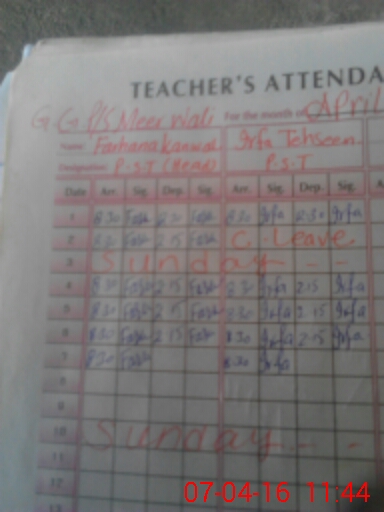 TEACHER'S ATTENDA
G.G P/S Meer Wali For the month of April
Name Farhana Kanwal Irfa Tehseen
Designation P.S.T (Head) P.S.T
Date Arr. Sig. Dep. Sig. Arr. Sig. Dep. Sig. A
1 8.30 Fash 2.30 Fash 8.30 Irfa 2.30 Irfa
2 8.30 Fash 2.15 Fash C. Leave
3 Sunday - -
4 8.30 Fash 2.15 Fash 8.30 Irfa 2.15 Irfa
5 8.30 Fash 2.15 Fash 8.30 Irfa 2.15 Irfa
6 8.30 Fash 2.15 Fash 8.30 Irfa 2.15 Irfa
7 8.30 Fash 8.30 Irfa
8
9
10 Sunday - -
11
12
13
07-04-16 11:44